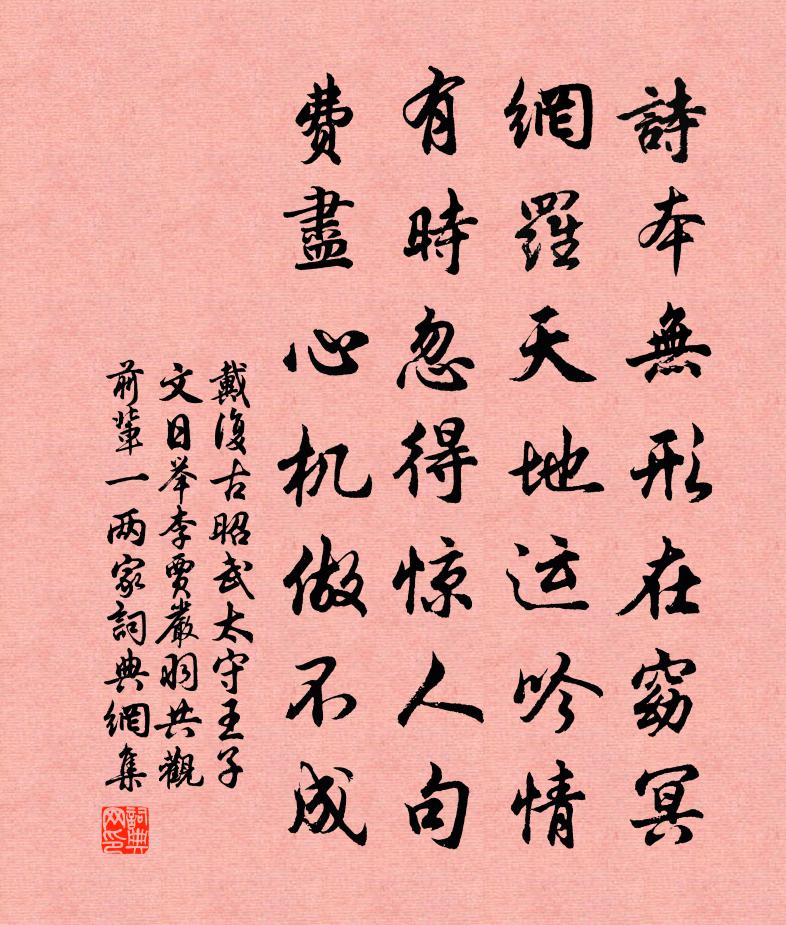 詩本無形在窈冥
網羅天地运吟情
有時忽得惊人句
费盡心机做不成
戴復古昭武太守王子
文日举李賈嚴羽共觀
前輩一两家詞典網集
詞典网印